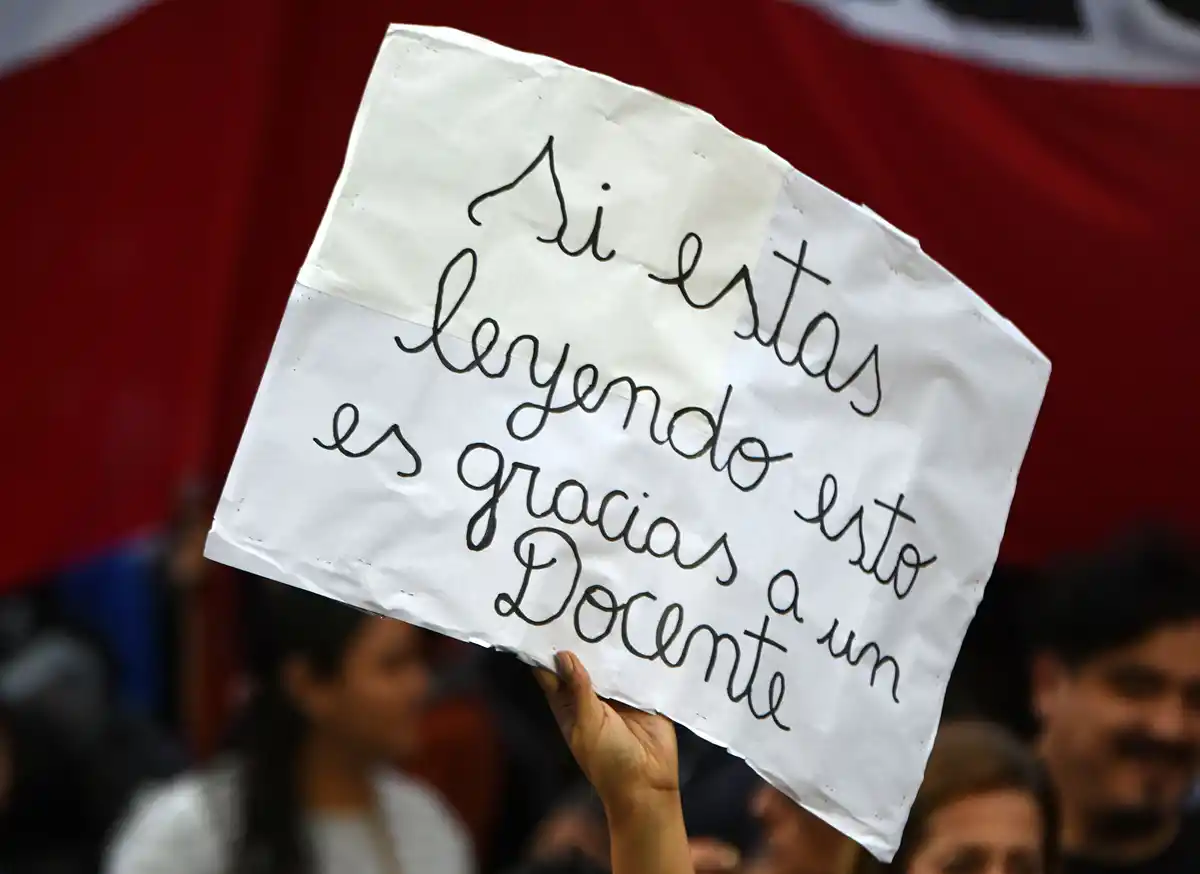 Si estas
leyendo esto
es gracias a un
Docente